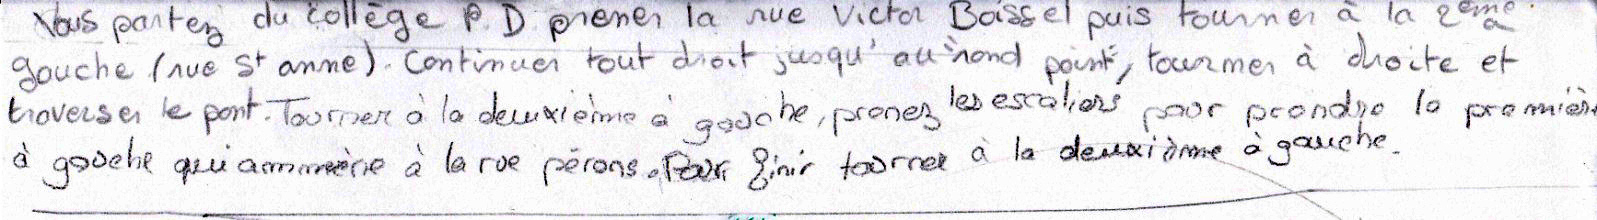 Vous partez du collège P.D. prener la rue Victor Boissel puis tourner à la 2ème à
gauche (rue St anne). Continuer tout droit jusqu'au rond point, tourner à droite et
traverser le pont. Tourner à la deuxième à gauche, prenez les escaliers pour prendre la première
à gauche qui ammène à la rue pérons. Pour finir tourner à la deuxième à gauche.